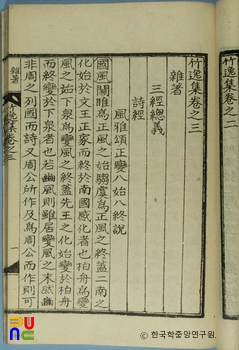 竹逸集卷之二
竹逸集卷之三
雜著
三經總義
詩經
風雅頌正變八始八終說
國風關雎爲正風之始騶虞爲正風之終蓋二南之
化始於文王正家而終於南國感化者也柏舟爲變
風之始下泉爲變風之終蓋先王之化始變於柏舟
而終變於下泉者也若豳風則雖居變風之末然豳
非周之列國而詩又周公所作及爲周公而作則可
雜著
竹逸集卷之三
一
한국학중앙연구원